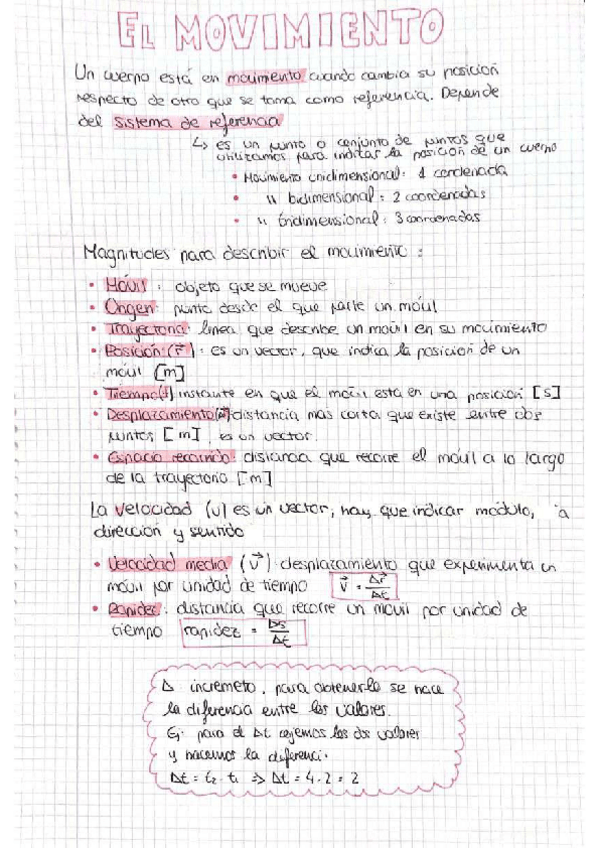 EL MOVIMIENTO
Un cuerpo está en movimiento cuando cambia su posición
respecto de otro que se toma como referencia. Depende
del sistema de referencia
↳ es un punto o conjunto de puntos que
utilizamos para indicar la posición de un cuerpo
• Movimiento unidimensional: 1 cordenada
• " bidimensional: 2 coordenadas
• " tridimensional: 3 coordenadas
Magnitudes para describir el movimiento:
• Móvil: objeto que se mueve
• Origen: punto desde el que parte un móvil
• Trayectoria: linea que describe un móvil en su movimiento
• Posición: (r⃗): es un vector, que indica la posicion de un
móvil [m]
• Tiempo(t) instante en que el móvil esta en una posición [s]
• Desplazamiento distancia mas corta que existe entre dos
puntos [m], es un vector.
• Espacio recorrido: distancia que recorre el móvil a lo largo
de la trayectoria [m]
La velocidad (v) es un vector, hay que indicar módulo, a
dirección y sentido
• Velocidad media (v⃗): desplazamiento que experimenta un
móvil por unidad de tiempo v⃗ = Δr⃗/Δt
• Rapidez: distancia que recorre un movil por unidad de
tiempo rapidez = Δs/Δt
Δ incremeto, para obtenerlo se hace
la diferencia entre los valores.
Ej: para el Δt cojemos los dos valores
y hacemos la diferenci.
Δt = t₂ - t₁ => Δt = 4 - 2 = 2